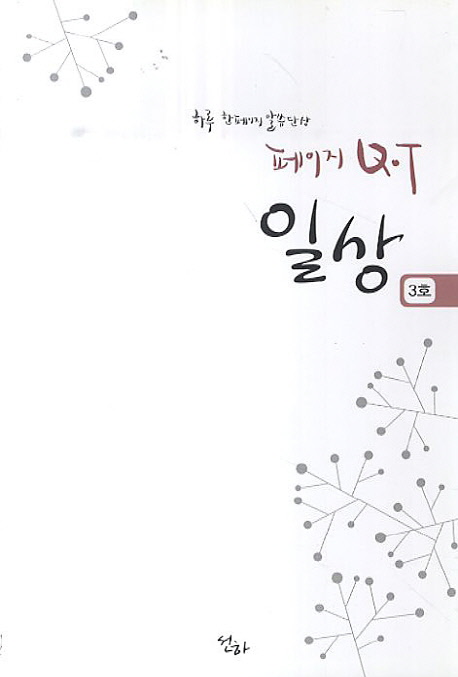 하루 한 페이지 말씀 단상
페이지 Q.T
일상
3호
선하